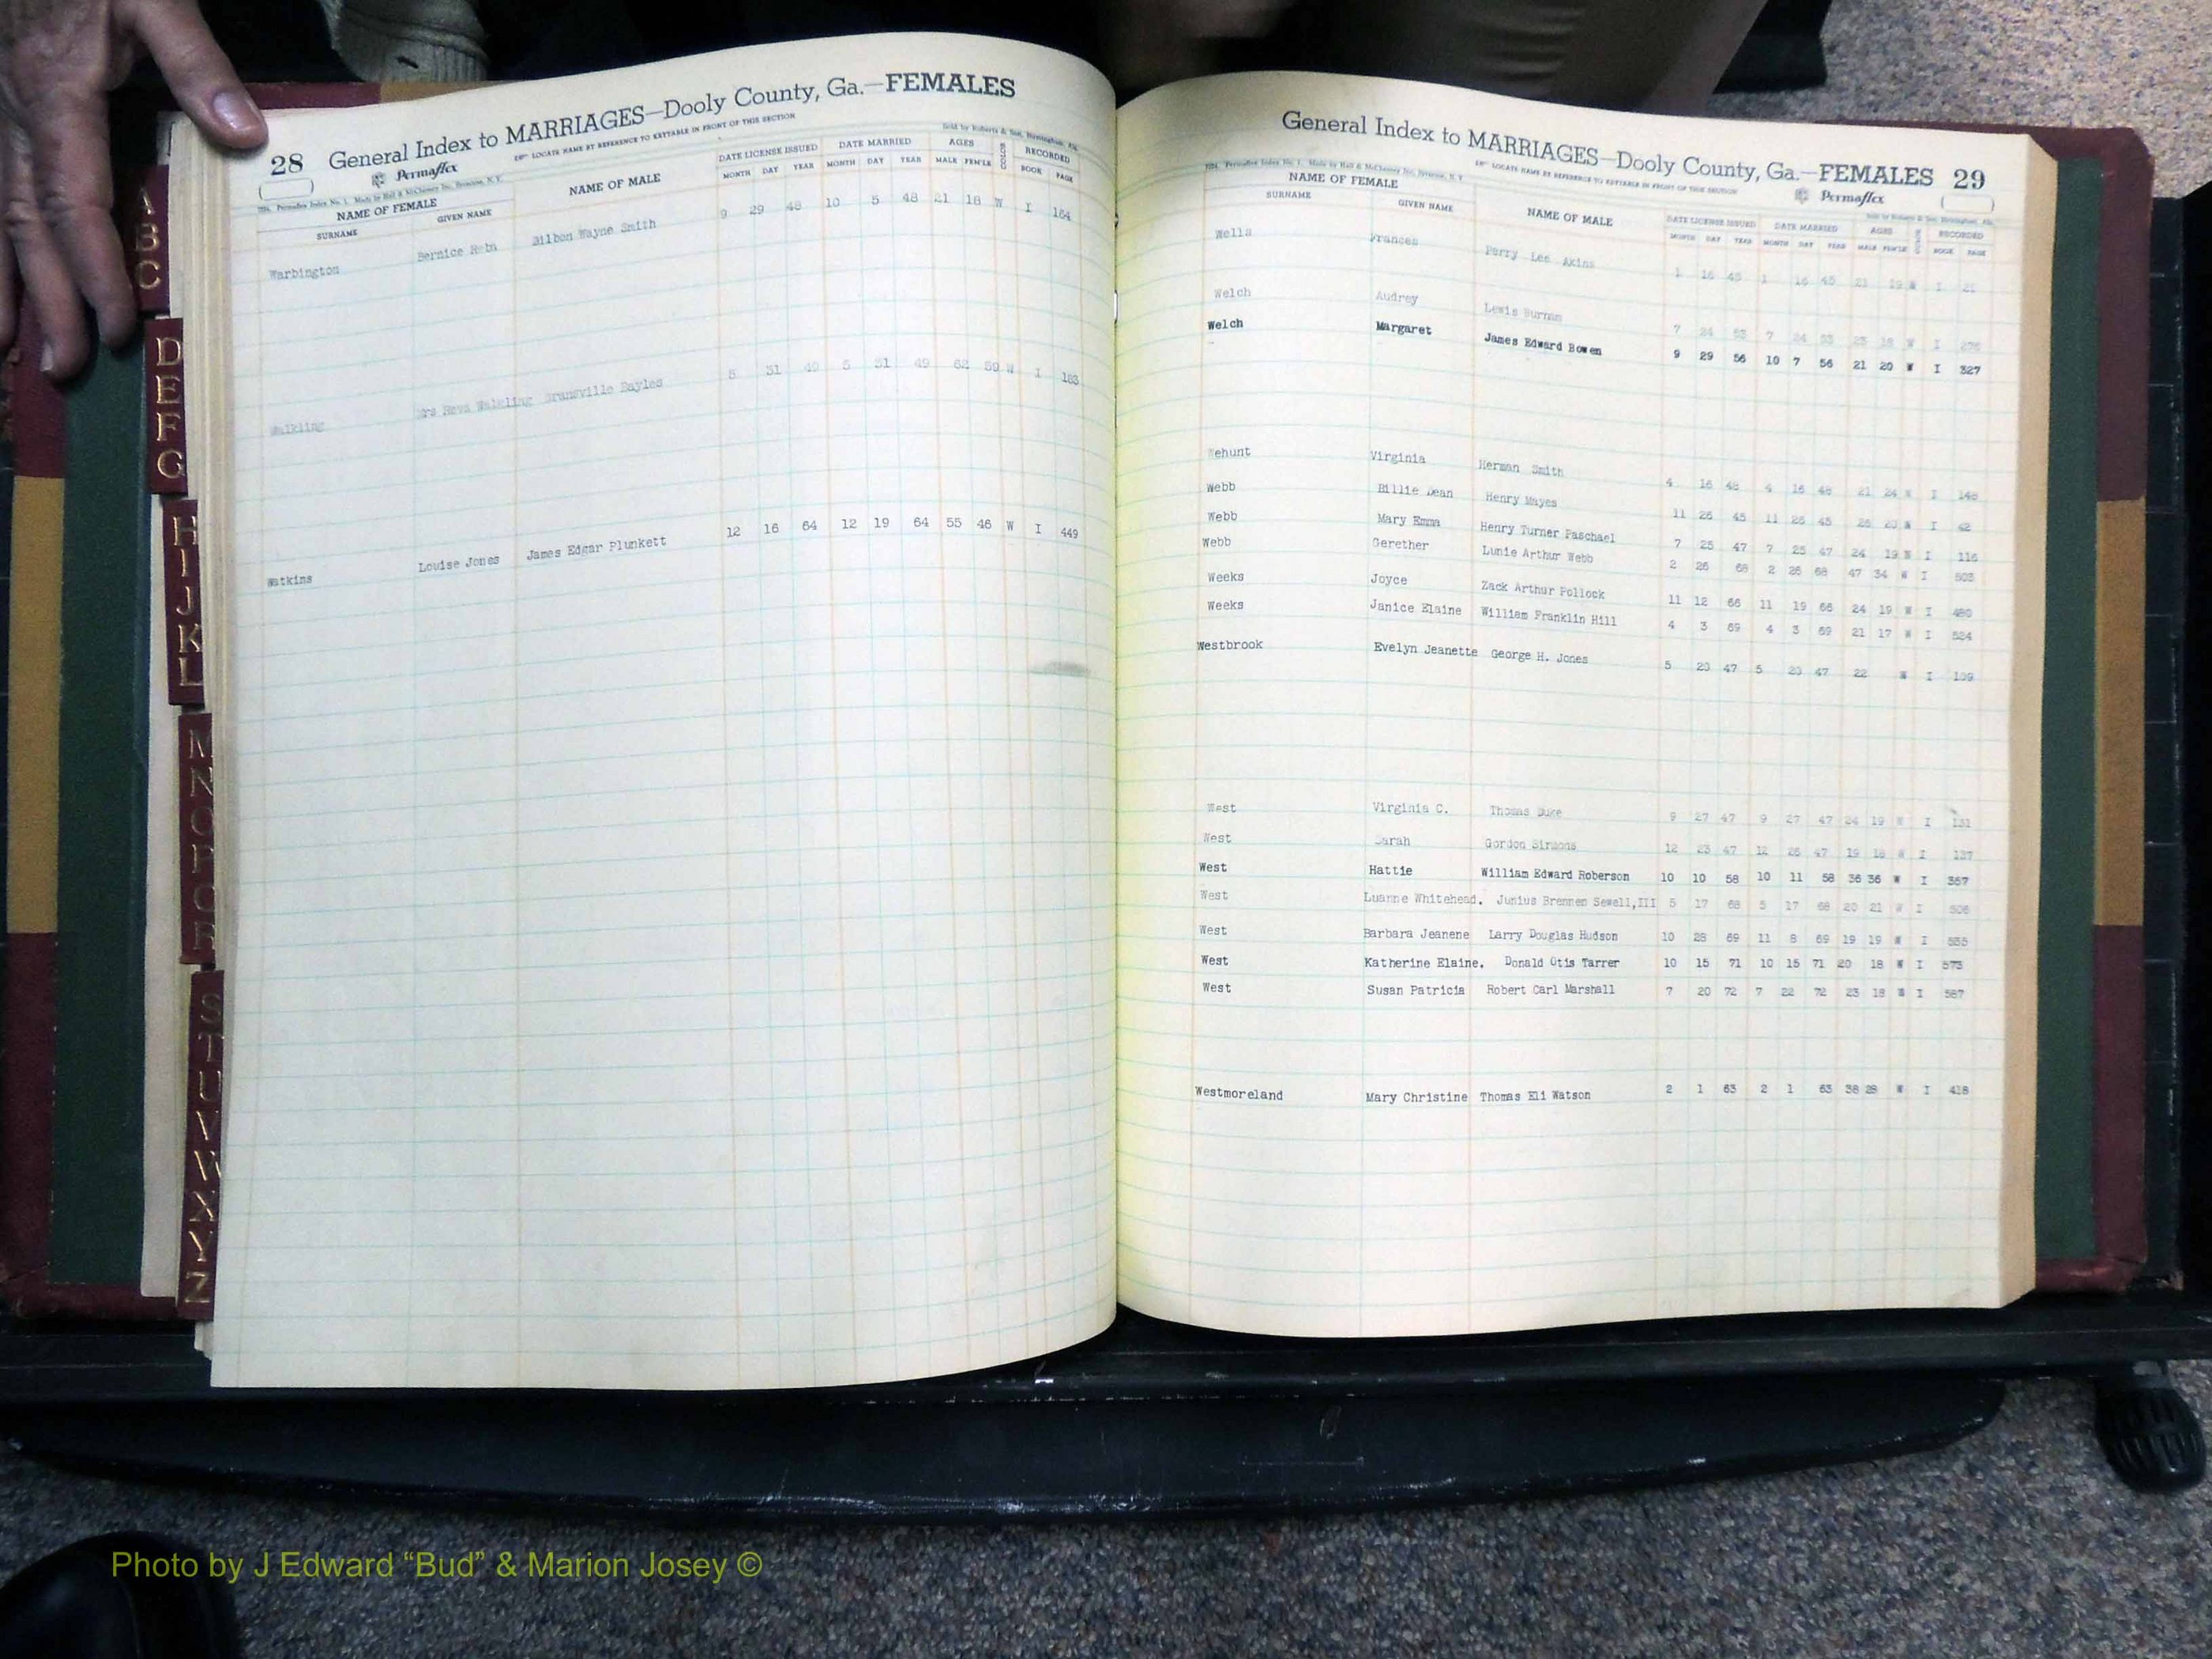 28 General Index to MARRIAGES—Dooly County, Ga.—FEMALES
Permaflex
LOCATE NAME BY REFERENCE TO KEYTABLE IN FRONT OF THIS SECTION
Sold by Roberts & Son, Birmingham, Ala.
NAME OF FEMALE NAME OF MALE DATE LICENSE ISSUED DATE MARRIED AGES COLOR RECORDED
SURNAME GIVEN NAME MONTH DAY YEAR MONTH DAY YEAR MALE FEM'LE BOOK PAGE
Warbington Bernice Wayne Smith 9 29 48 10 5 48 21 18 W I 164
Walkling Mrs Walkling Bayles 5 31 49 5 31 49 62 59 W I 183
Watkins Louise Jones James Edgar Plunkett 12 16 64 12 19 64 55 46 W I 449
A
B
C
D
E
F
G
H
I
J
K
L
M
N
O
P
Q
R
S
T
U
V
W
X
Y
Z
General Index to MARRIAGES—Dooly County, Ga.—FEMALES 29
LOCATE NAME BY REFERENCE TO KEYTABLE IN FRONT OF THIS SECTION
Permaflex
NAME OF FEMALE NAME OF MALE DATE LICENSE ISSUED DATE MARRIED AGES COLOR RECORDED
SURNAME GIVEN NAME MONTH DAY YEAR MONTH DAY YEAR MALE FEM'LE BOOK PAGE
Wells Frances Perry Lee Akins 1 16 45 1 16 45 21 19 W I
Welch Audrey Lewis Burnam 7 24 53 7 24 53 23 18 W I
Welch Margaret James Edward Bowen 9 29 56 10 7 56 21 20 W I 327
Wehunt Virginia Herman Smith 4 16 48 4 16 48 21 24 W I 148
Webb Billie Dean Henry Mayes 11 26 45 11 26 45 W I 42
Webb Mary Emma Henry Turner Paschael 7 25 47 7 25 47 24 19 W I 116
Webb Gerether Lunie Arthur Webb 2 26 68 2 26 68 47 34 W I 503
Weeks Joyce Zack Arthur Pollock 11 12 66 11 19 66 24 19 W I 480
Weeks Janice Elaine William Franklin Hill 4 3 69 4 3 69 21 17 W I 524
Westbrook Evelyn Jeanette George H. Jones 5 47 5 47 22 W I 109
West Virginia C. Thomas Duke 9 27 47 9 27 47 24 19 W I 131
West Sarah Gordon Simmons 12 23 47 12 47 19 18 W I 137
West Hattie William Edward Roberson 10 10 58 10 11 58 36 36 W I 367
West Luanne Whitehead. Junius Brennen Sewell,III 5 17 68 5 17 68 20 21 W I 506
West Barbara Jeanene Larry Douglas Hudson 10 28 69 11 8 69 19 19 W I 535
West Katherine Elaine. Donald Otis Tarrer 10 15 71 10 15 71 20 18 W I 573
West Susan Patricia Robert Carl Marshall 7 20 72 7 22 72 23 18 W I 587
Westmoreland Mary Christine Thomas Eli Watson 2 1 63 2 1 63 38 28 W I 418
Photo by J Edward “Bud” & Marion Josey ©